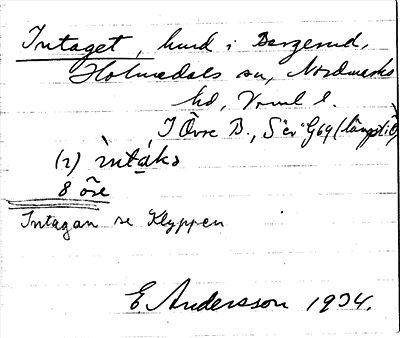 Intaget, hmd i Bergerud,
Holmedals sn, Nordmarks
hd, Vrml l.
I Övre B., S "ev" G69 (längst i Ö)
(2) ìntáks
8 öre
Intagan se Klyppen
E. Andersson 1934.